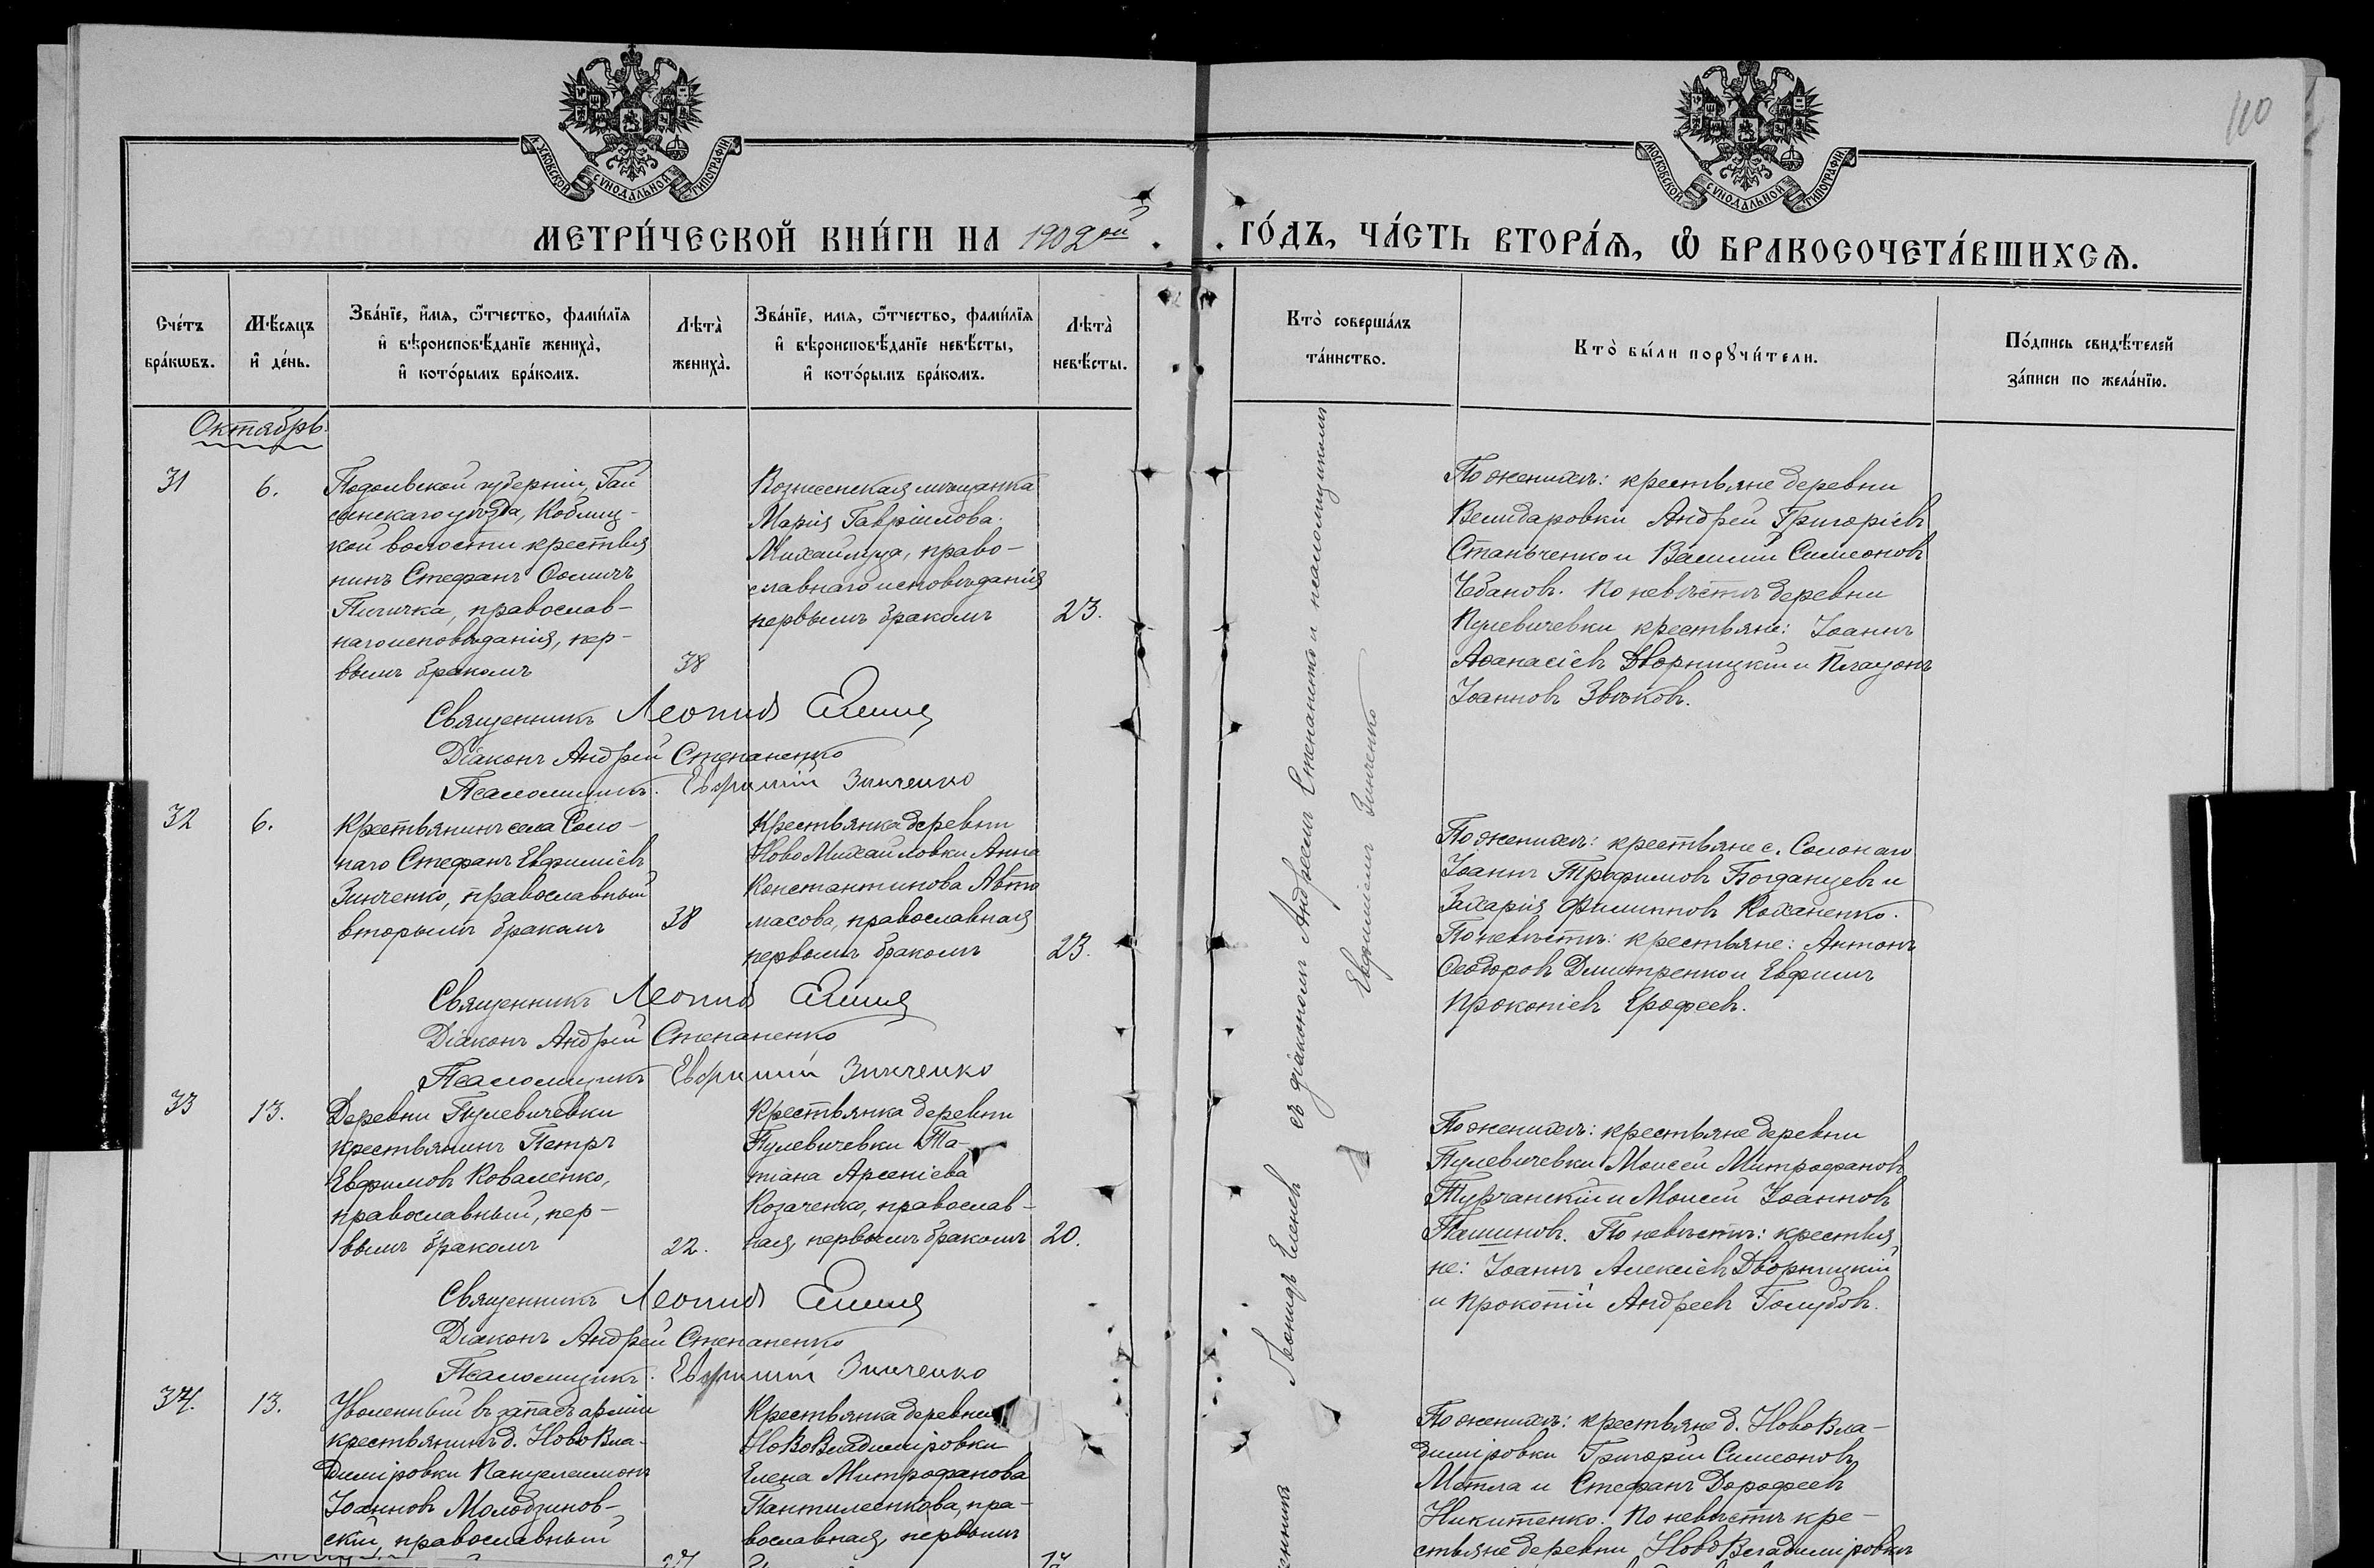 110
МОСКОВСКОЙ СѴНОДАЛЬНОЙ ТИПОГРАФІИ
МОСКОВСКОЙ СѴНОДАЛЬНОЙ ТИПОГРАФІИ
МЕТРИ́ЧЕСКОЙ КНИ́ГИ НА 1902ой
ГО́ДЪ, ЧА́СТЬ ВТОРА́Ѧ, Ѡ҆ БРАКОСОЧЕТА́ВШИХСѦ.
Сче́тъ
бра́кѡвъ.
Мѣ́сяцъ
и҆ де́нь.
Зва́нїе, и҆́мѧ, ѻ҆́тчество, фами́лїѧ
и҆ вѣроисповѣ́данїе жениха̀,
и҆ кото́рымъ бра́комъ.
Лѣта̀
жениха̀.
Зва́нїе, имѧ, ѻ҆́тчество, фами́лїѧ
и҆ вѣроисповѣ́данїе невѣ́сты,
и҆ кото́рымъ бра́комъ.
Лѣта̀
невѣ́сты.
Кто̀ соверша́лъ
та́инство.
Кто̀ бы́ли порꙋчи́тели.
По́дпись свидѣ́телей
за́писи по жела́нїю.
Октябрь.
31
6.
Подольской губерніи, Гай
синскаго уѣзда, Коблиц-
кой волости крестья
нинъ Стефанъ Ѳомичъ
Пигичка, православ-
наго исповѣданія, пер-
вымъ бракомъ
38
Вознесенская мѣщанка
Марія Гавріилова
Михайлуца, право-
славнаго исповѣданія
первымъ бракомъ
23.
По женихѣ: крестьяне деревни
Велидаровки Андрей Григоріевъ
Станьченко и Василій Симеоновъ
Чебановъ. По невѣстѣ деревни
Пулевичевки крестьяне: Іоаннъ
Аѳанасіевъ Дворницкій и Платонъ
Іоанновъ Звѣковъ.
Священникъ Леонидъ Еленевъ
Діаконъ Андрей Степаненко
Псаломщикъ Евѳимій Зинченко
32
6.
Крестьянинъ села Соло-
наго Стефанъ Евфиміевъ
Зинченко, православный
вторымъ бракомъ
38
Крестьянка деревни
НовоМихайловки Анна
Константинова Авто
масова, православная
первымъ бракомъ
23.
По женихѣ: крестьяне с. Солонаго
Іоаннъ Трофимовъ Богданцевъ и
Захарія Филипповъ Коханенко.
По невѣстѣ: крестьяне: Антонъ
Ѳеодоровъ Дмитренко и Евфимъ
Прокопіевъ Ерофеевъ.
Священникъ Леонидъ Еленевъ
Діаконъ Андрей Степаненко
Псаломщикъ Евѳимій Зинченко
33
13.
Деревни Пулевичевки
крестьянинъ Петръ
Евфимовъ Коваленко,
православный, пер-
вымъ бракомъ
22.
Крестьянка деревни
Пулевичевки Та-
тіана Арсеніева
Козаченко, православ-
ная, первымъ бракомъ
20.
По женихѣ: крестьяне деревни
Пулевичевки Моисей Митрофановъ
Турчанскій и Моисей Іоанновъ
Пашиновъ. По невѣстѣ: крестья
не: Іоаннъ Алексіевъ Дворницкій
и Прокопій Андреевъ Голубовъ.
Священникъ Леонидъ Еленевъ
Діаконъ Андрей Степаненко
Псаломщикъ Евѳимій Зинченко
34.
13.
Уволенный въ запасъ арміи
крестьянинъ д. НовоВла-
диміровки Пантелеимонъ
Іоанновъ Молодзинов-
скій, православный
Крестьянка деревни
НовоВладиміровки
Елена Митрофанова
Пантилеенкова, пра-
вославная, первымъ
По женихѣ: крестьяне д. НовоВла-
диміровки Григорій Симеоновъ
Метла и Стефанъ Дорофеевъ
Никитенко. По невѣстѣ кре-
стьяне деревни НовоВладиміровки
Леонидъ Еленевъ съ діакономъ Андреемъ Степаненко и псаломщикомъ
Евфиміемъ Зинченко